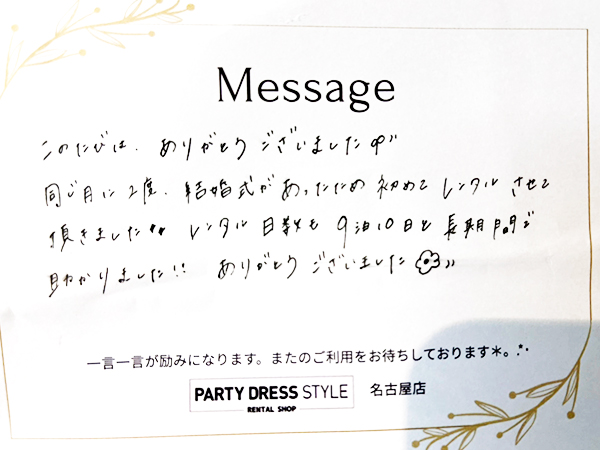 Message
このたびは、ありがとうございました
同じ月に2度、結婚式があったため初めてレンタルさせて
頂きました!! レンタル日数も9泊10日と長期間で
助かりました!! ありがとうございました
一言一言が励みになります。またのご利用をお待ちしております*。
PARTY DRESS STYLE 名古屋店
RENTAL SHOP